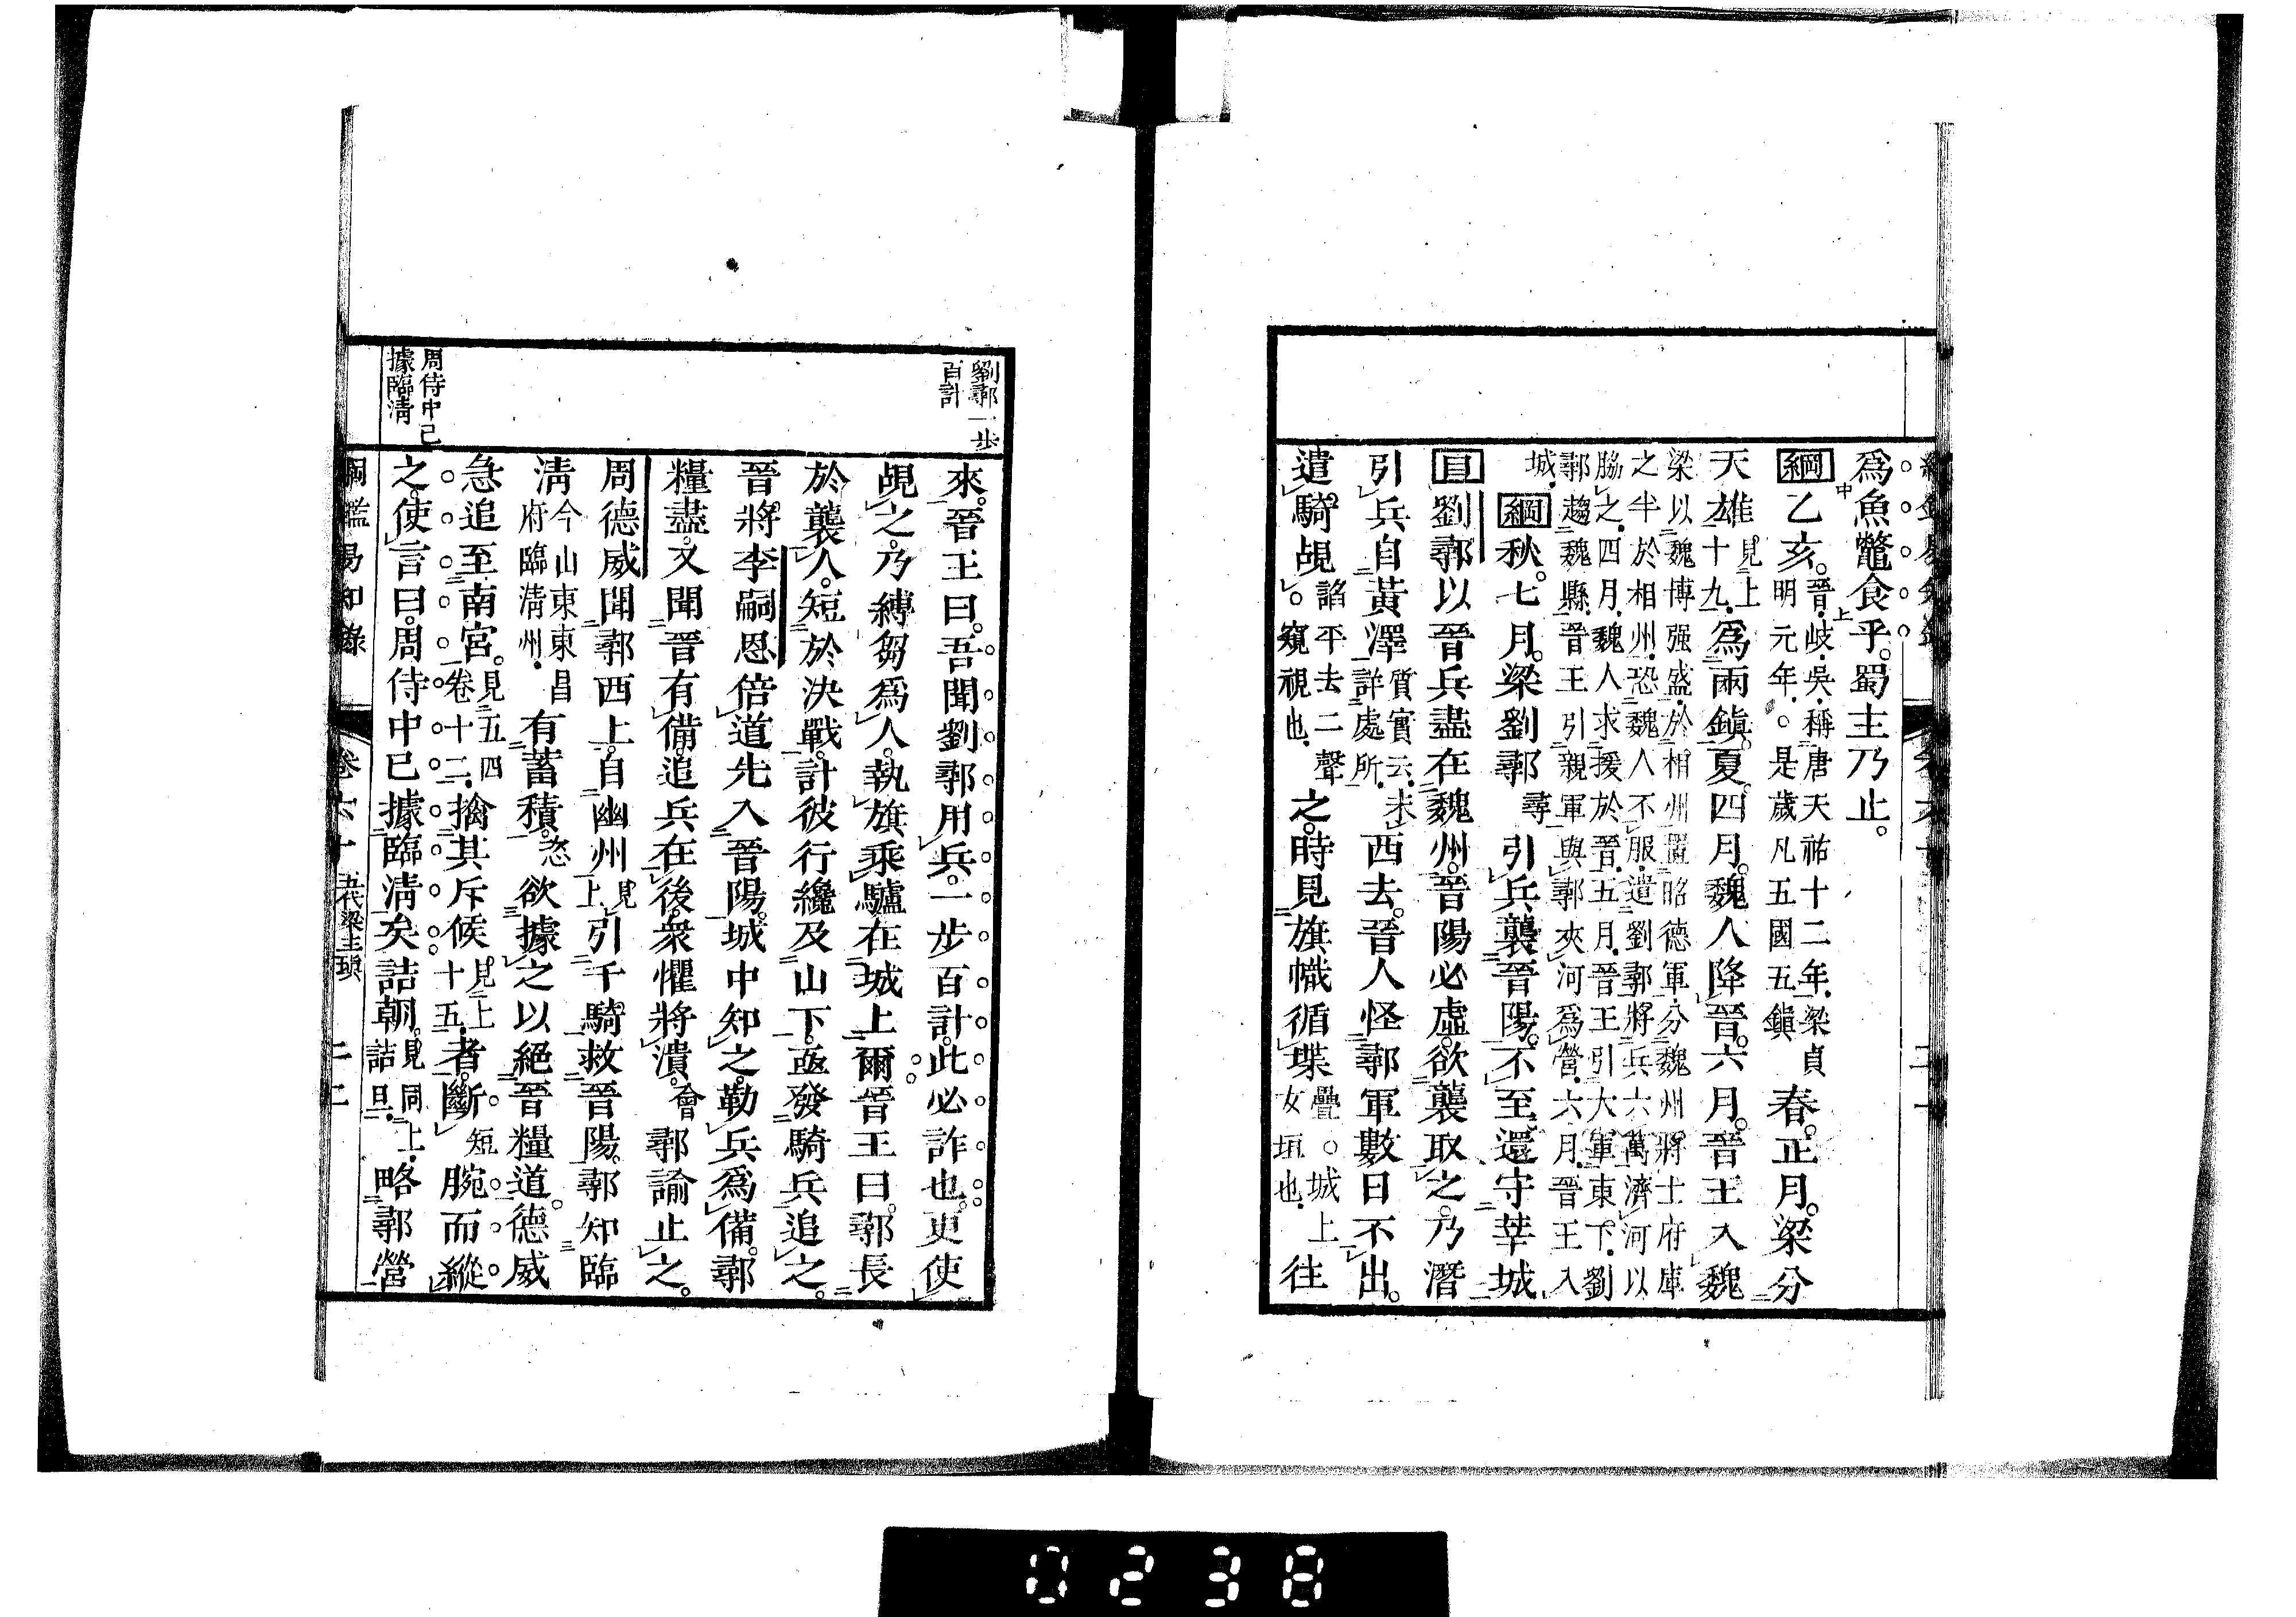 爲魚鼈食乎。蜀主乃止。
綱乙亥。晉岐吳稱唐天祐十二年。梁貞
明元年。○是歲凡五國五鎭春。正月。梁分
天雄見上
十九爲兩鎭。夏。四月。魏人降晉。六月。晉王入魏
梁以魏博强盛。於相州置昭德軍。分魏州將士府庫
之半於相州。恐魏人不服。遣劉鄩將兵六萬濟河以
脇之。四月。魏人求援於晉。五月。晉王引大軍東下。劉
鄩趨魏縣。晉王引親軍與鄩夾河爲營。六月。晉王入
城。
綱秋。七月。梁劉鄩尋引兵襲晉陽。不至。還守莘城
目劉鄩以晉兵盡在魏州。晉陽必虛。欲襲取之。乃潛
引兵自黃澤質實云。未
詳處所。西去。晉人怪鄩軍數日不出。
遣騎覘諂平去二聲
○窺視也。之。時見旗幟循堞疊。○城上
女垣也。往
劉鄩一步
百計
來。晉王曰。吾聞劉鄩用兵。一步百計。此必詐也。更使
覘之。乃縛芻爲人。執旗乘驢在城上爾。晉王曰。鄩長
於襲人。短於決戰。計彼行纔及山下。亟發騎兵追之。
晉將李嗣恩倍道先入晉陽。城中知之。勒兵爲備。鄩
糧盡。又聞晉有備。追兵在後。衆懼將潰。會鄩諭止之。
周德威聞鄩西上。自幽州見上引千騎救晉陽。鄩知臨
淸今山東東昌
府臨淸州。有蓄積。恣欲據之以絕晉糧道。德威
急追至南宮。見五四
卷十二。擒其斥候見上
十五。者。斷短腕而縱
之。使言曰。周侍中已據臨淸矣。詰朝見同上。
詰旦。略鄩營
周侍中已
據臨淸
綱鑑易知錄 卷六十 五代梁主瑱 二十二
0238